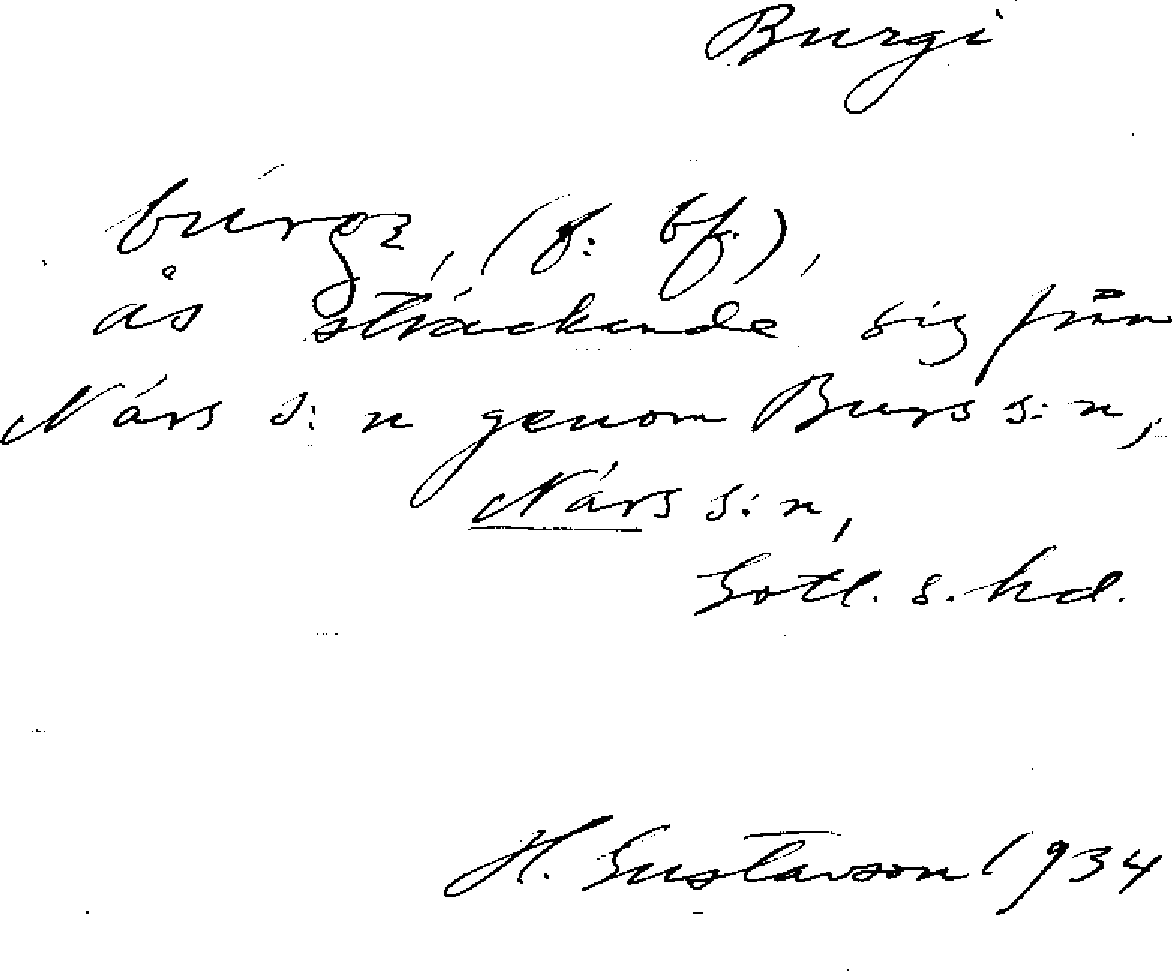 Burgi
búrgı, (f: bf.),
ås sträckande sig från
Närs s:n genom Burs s:n,
Närs s:n,
Gotl. s. hd.
H. Gustavson 1934